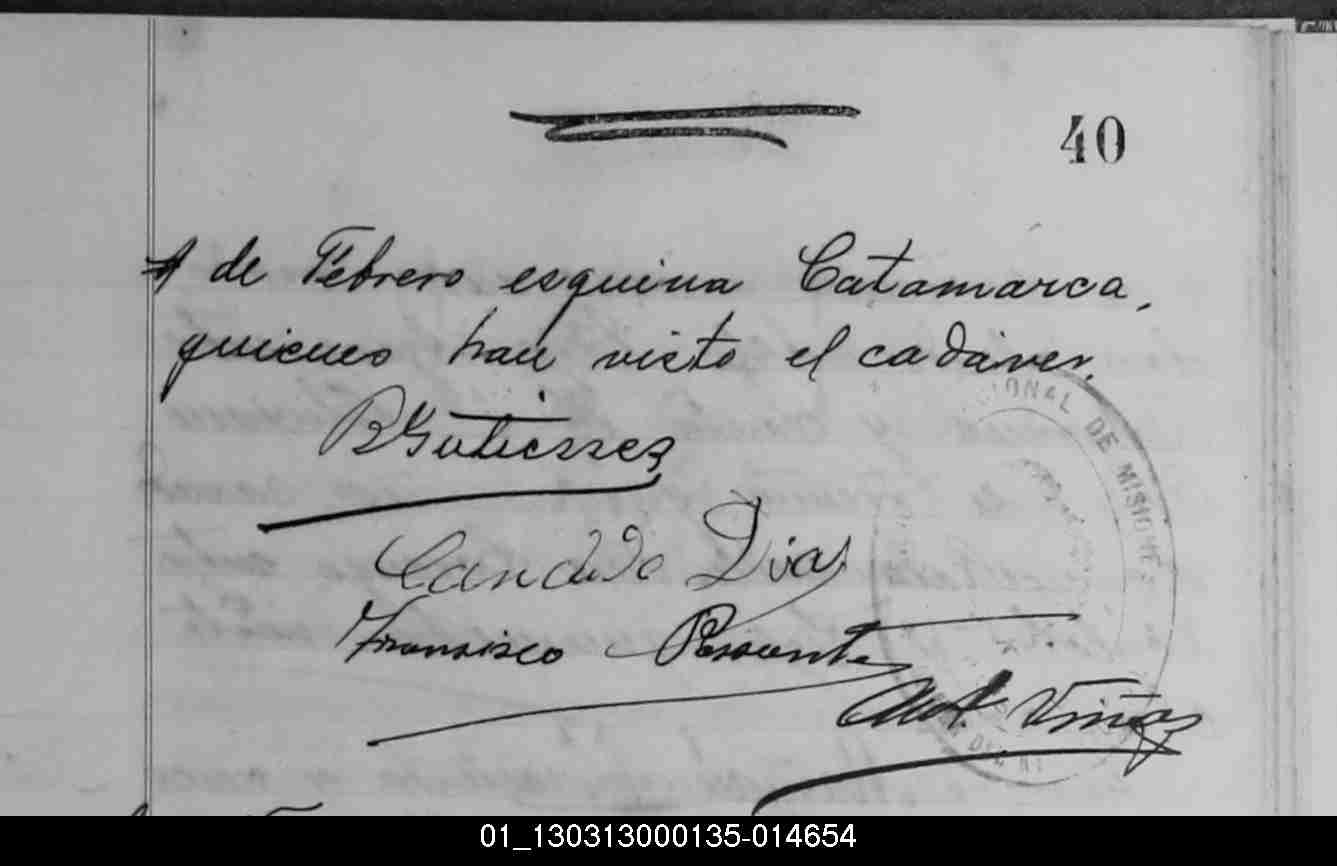 40
de Febrero esquina Catamarca,
quienes han visto el cadáver.
B Gutierrez
Candido Dias
Francisco
Viñas
IONAL DE MISIONES
01_130313000135-014654